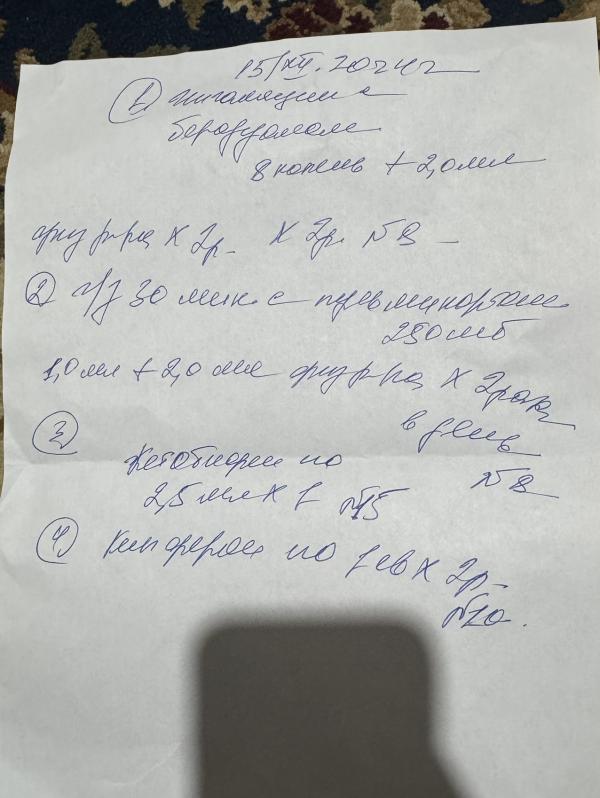 15/XII. 2024г
① ингаляции с
беродуалом
8 капель + 2,0 мл
физ р-ра х 2р. х 2р. N 8
② ч/з 30 мин. с пульмикортом
250 мг
1,0 мл + 2,0 мл физ р-ра х 2 раза
в день
N 8
③
по
2,5 мл х 1 N15
④ Кипферон по 1 св х 2р.
N10.